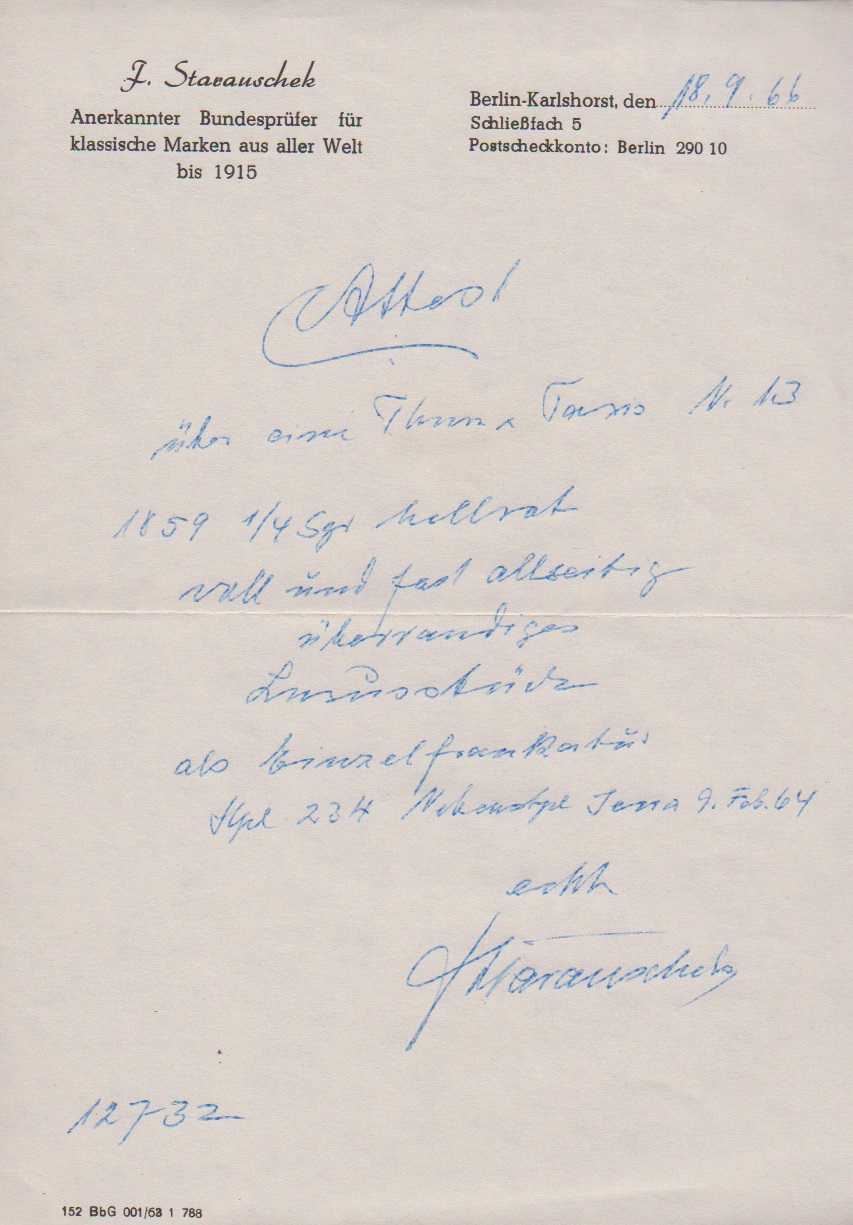 J. Starauschek
Anerkannter Bundesprüfer für
klassische Marken aus aller Welt
bis 1915
Berlin-Karlshorst, den 18. 9. 66
Schließfach 5
Postscheckkonto: Berlin 290 10
Attest
über eine Thurn x Taxis Nr 13
1859 1/4 Sgr hellrot
voll und fast allseitig
überrandiges
Luxusstück
als Einzelfrankatur
Stpl 234 Nebenstpl Jena 9. Feb. 64
echt
Starauschek
12732
152 BbG 001/63 1 788